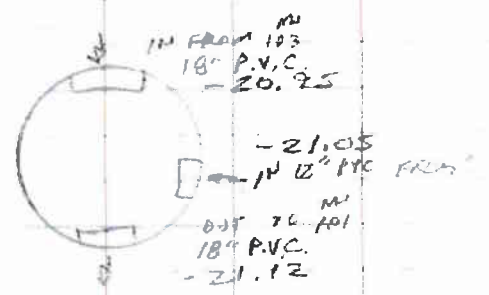 MH
IN FROM 103
18" P.V.C.
- 20.95
- 21.05
IN 12" PVC FROM
MH
OUT TO 101
18" P.V.C.
- 21.12